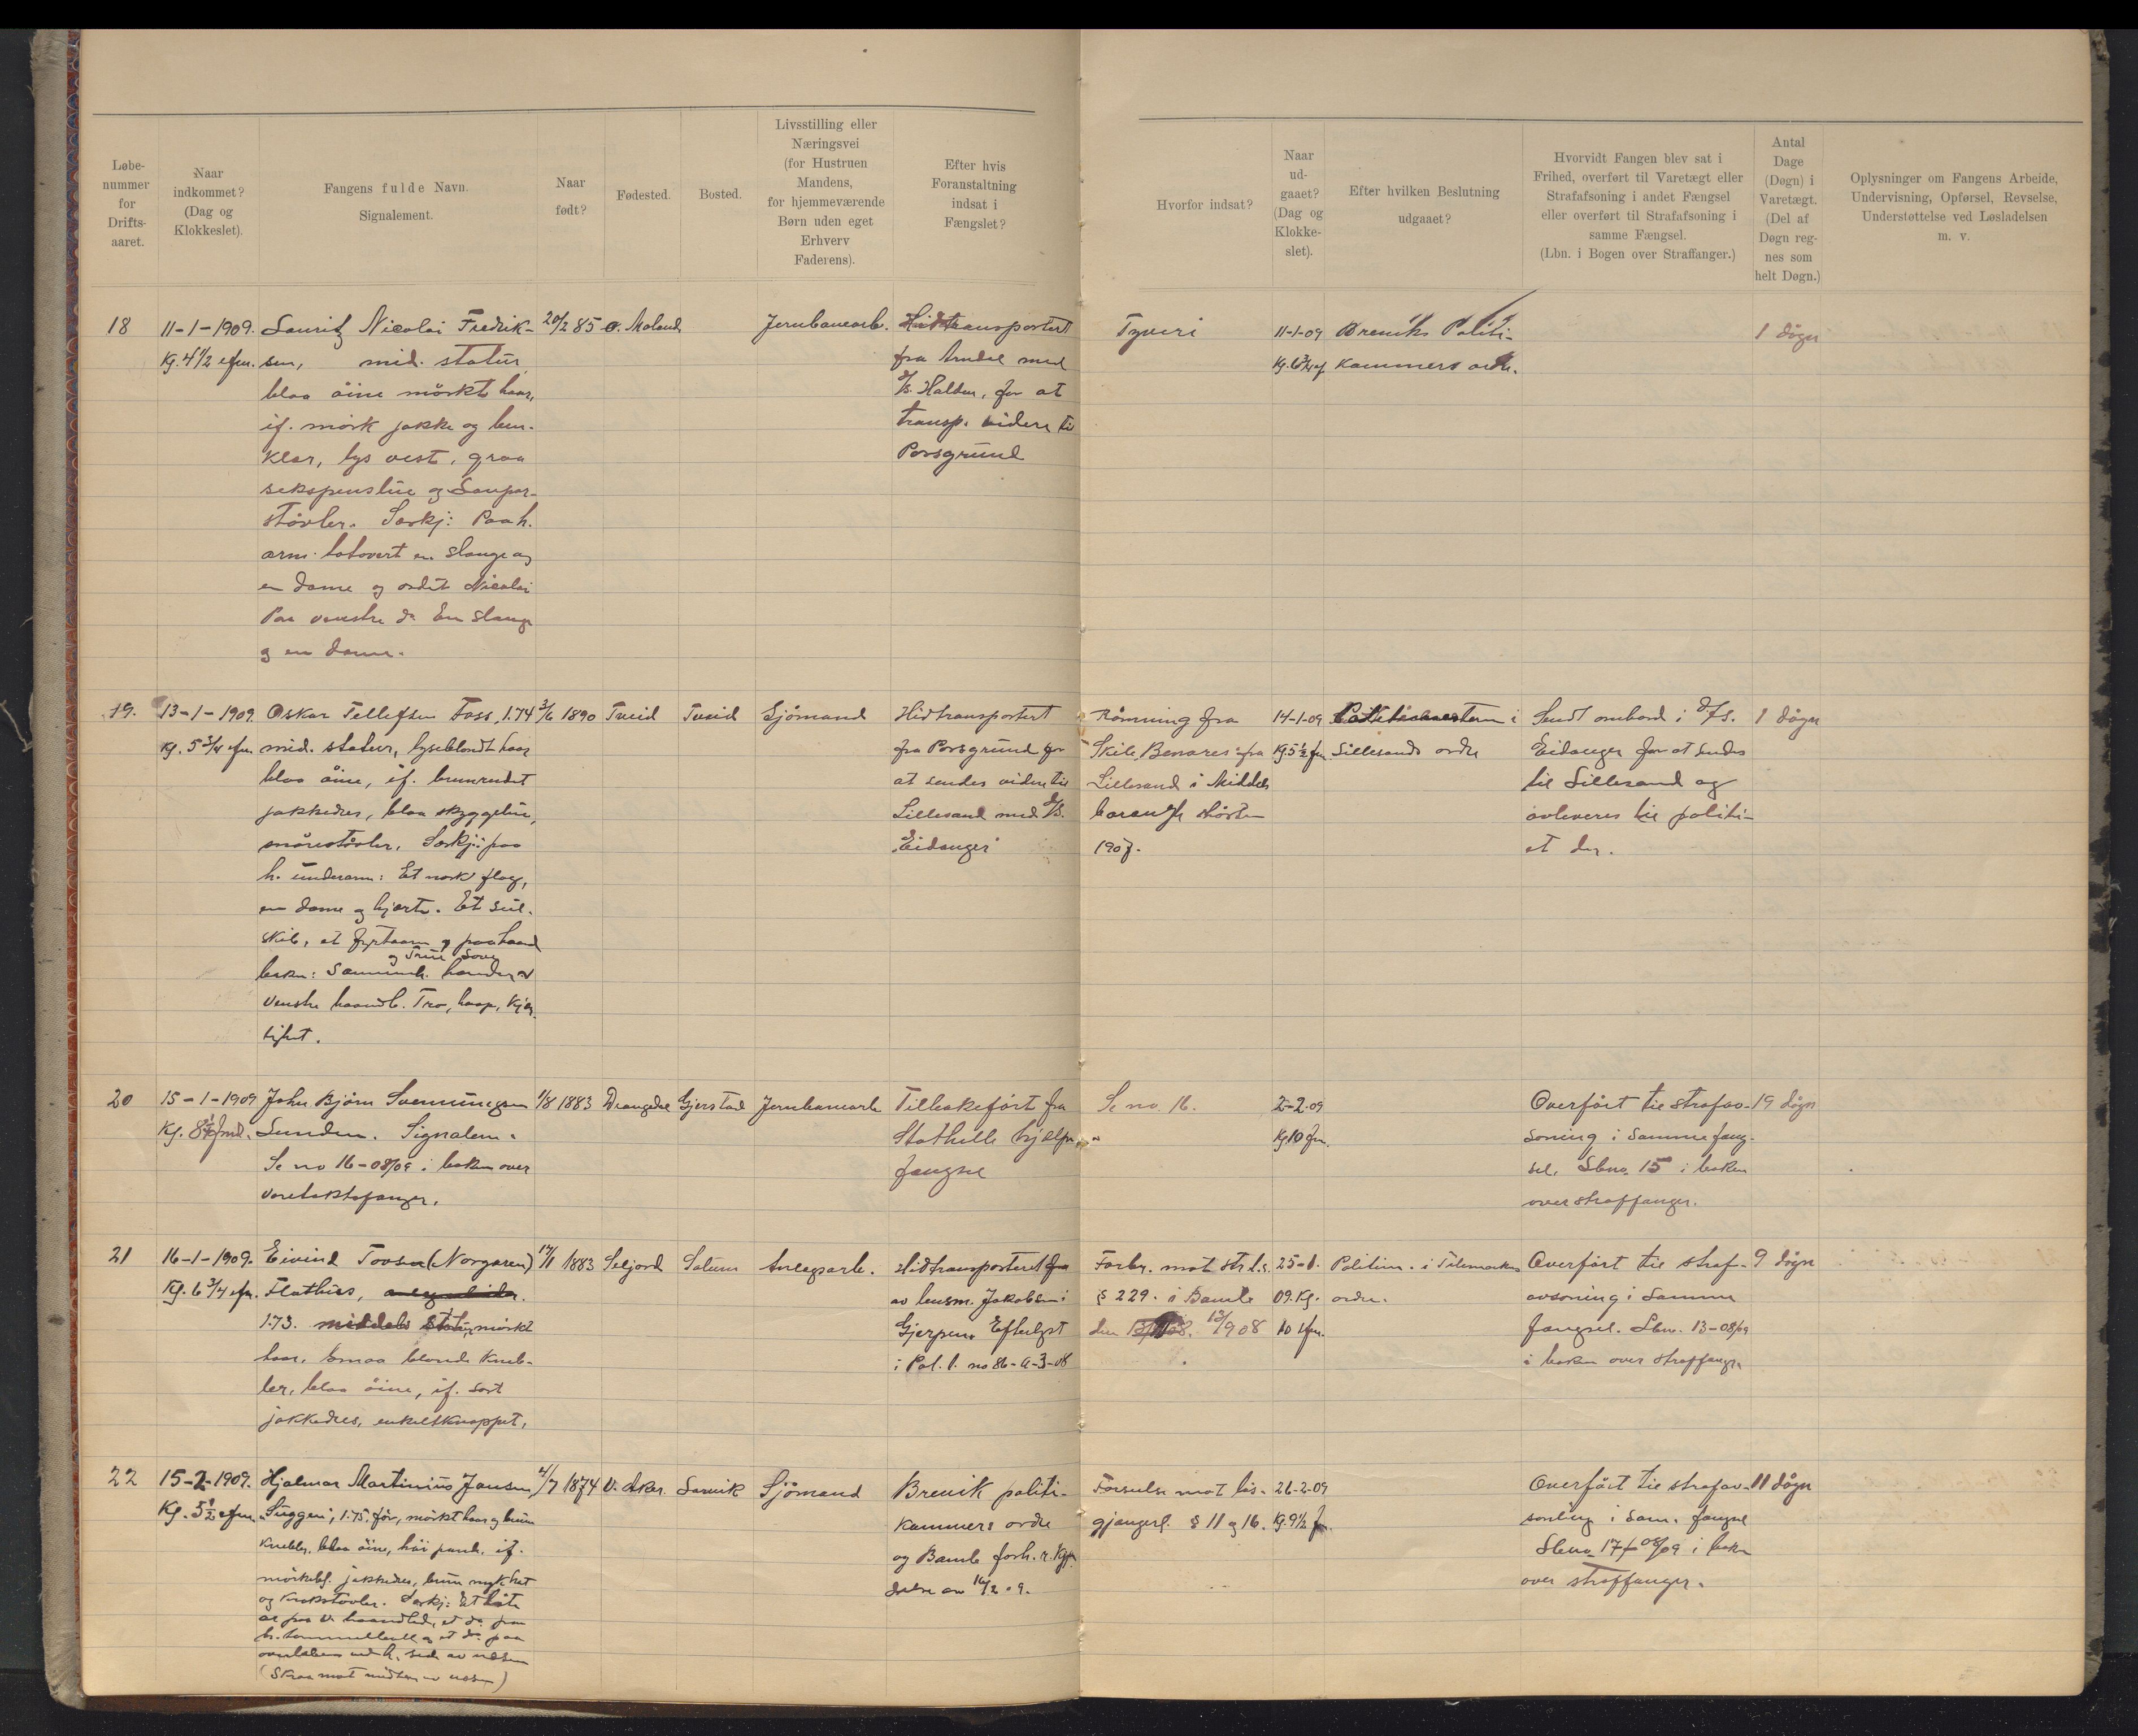 Løbe-
nummer
for
Drifts-
aaret.
Naar
indkommet?
(Dag og
Klokkeslet).
Fangens fulde Navn.
Signalement.
Naar
født?
Fødested.
Bosted.
Livsstilling eller
Næringsvei
(for Hustruen
Mandens,
for hjemmeværende
Børn uden eget
Erhverv
Faderens).
Efter hvis
Foranstaltning
indsat i
Fængslet?
Hvorfor indsat?
Naar
ud-
gaaet?
(Dag og
Klokke-
slet).
Efter hvilken Beslutning
udgaaet?
Hvorvidt Fangen blev sat i
Frihed, overført til Varetægt eller
Strafafsoning i andet Fængsel
eller overført til Strafafsoning i
samme Fængsel.
(Lbn. i Bogen over Straffanger.)
Antal
Dage
(Døgn) i
Varetægt.
(Del af
Døgn reg-
nes som
helt Døgn.)
Oplysninger om Fangens Arbeide,
Undervisning, Opførsel, Revselse,
Understøttelse ved Løsladelsen
m. v.
18
11-1-1909.
Kg. 4 1/2 efm.
Lauritz Nicolai Fredrik-
sen, mid. statur,
blaa öine mörkt haar,
if. mörk jakke og ben-
klær, lys vest, graa
sekspenslue og
stövler. Særkj: Paa h.
arm tatovert en slange og
en dame og ordet Nicolai
Paa venstre do En slange
og en dame.
20/2 85
ø. Moland
Jernbanearb.
Hidtransportert
fra Arndal med
D/S. Halden, for at
transp. videre til
Porsgrund
Tyveri
11-1-09
Breviks Politi-
kammers ordr.
1 dögn
19.
13-1-1909.
Kg. 5 3/4 efm
Oskar Tellefsen Foss, 1.74
mid. statur, lyseblondt haar
blaa öine, if. brunrudet
jakkedres, blaa skyggelue,
snörestövler. Særkj: paa
h. underarm: Et norsk flag,
en dame og hjerte. Et seil-
skib, et fyrtaarn og paa haand
og True Love
baken: Sammenl. hænder
venstre haandl. Tro, haap, kjær-
lighet.
3/6 1890
Tveid
Tveid
Sjömand
Hidtransportert
fra Porsgrund for
at sendes videre til
Lillesand med D/S.
"Eidanger"
Römning fra
Skib "Benares" fra
Lillesand i Middels-
höster
1907.
14-1-09
Kg. 5 1/2 fm
Politimesteren i
Lillesands ordre
Sendt ombord i D/S.
Eidanger for at sendes
til Lillesand og
avleveres til politi-
et der.
1 dögn
20
15-1-1909
John Björn Svenningsen
Lunden. Signalem.
Se no 16-08/09 i boken over
varetaktsfanger.
1/8 1883
Drangedal
Gjerstad
Jernbanearb
Tilbakefört fra
Stathelle hjælpe-
fængsel
Se no. 16.
2-2-09
Kg. 10 fm.
Overfört til strafav-
soning i samme fæng-
sel. Lbno. 15 i boken
over straffanger.
19 dögn
21
16-1-1909.
Kg. 6 3/4 efm.
Eivind Tovsen (Norgaren)
Flathus,
1.73. middels statur, mörkt
haar, smaa blonde kneb-
ler, blaa öine, if. sort
jakkedres, enkeltknappet,
1883
Seljord
Solum
Anlægsarb.
Hidtransportert fra
av lensm. Jakobsen i
Gjerpen. Efterlyst
i Pol. t. no 86-a-3-08
Forbr. mot str. l.s.
§ 229. i Bamle
den 13/9 08
25-1-
09. Kg.
10 fm.
Politim. i Telemarkens
ordre.
Overfört til straf-
avsoning i samme
fængsel. Lbno. 13-08/09
i boken over straffanger
9 dögn
22
15-2-1909.
Kg. 5 1/2 efm.
Hjalmar Martinius Jansen
"Suggen", 1.75. för, mörkt haar og brun
knebler, blaa öine, höi pande, if.
mörkebl. jakkedres, brun myk hat
og knæstövler. Særkj: Et lite
ar paa v. haandled, et do. paa
h. tommelball og et do. paa
overlæben ved h. side av næsen
(Skraa mot midten av næsen)
4/7 1874
V. Aker.
Larvik
Sjömand
Brevik politi-
kammers ordre
og Bamle forh. r. kjen-
delse av 16/2 09.
Forseelse mot lös-
gjængerl. § 11 og 16.
26-2-09
Kg. 9 1/2 fm.
Overfört til strafav-
soning i sam. fængsel
Lbno. 17 08/09 i boken
over straffanger.
11 dögn